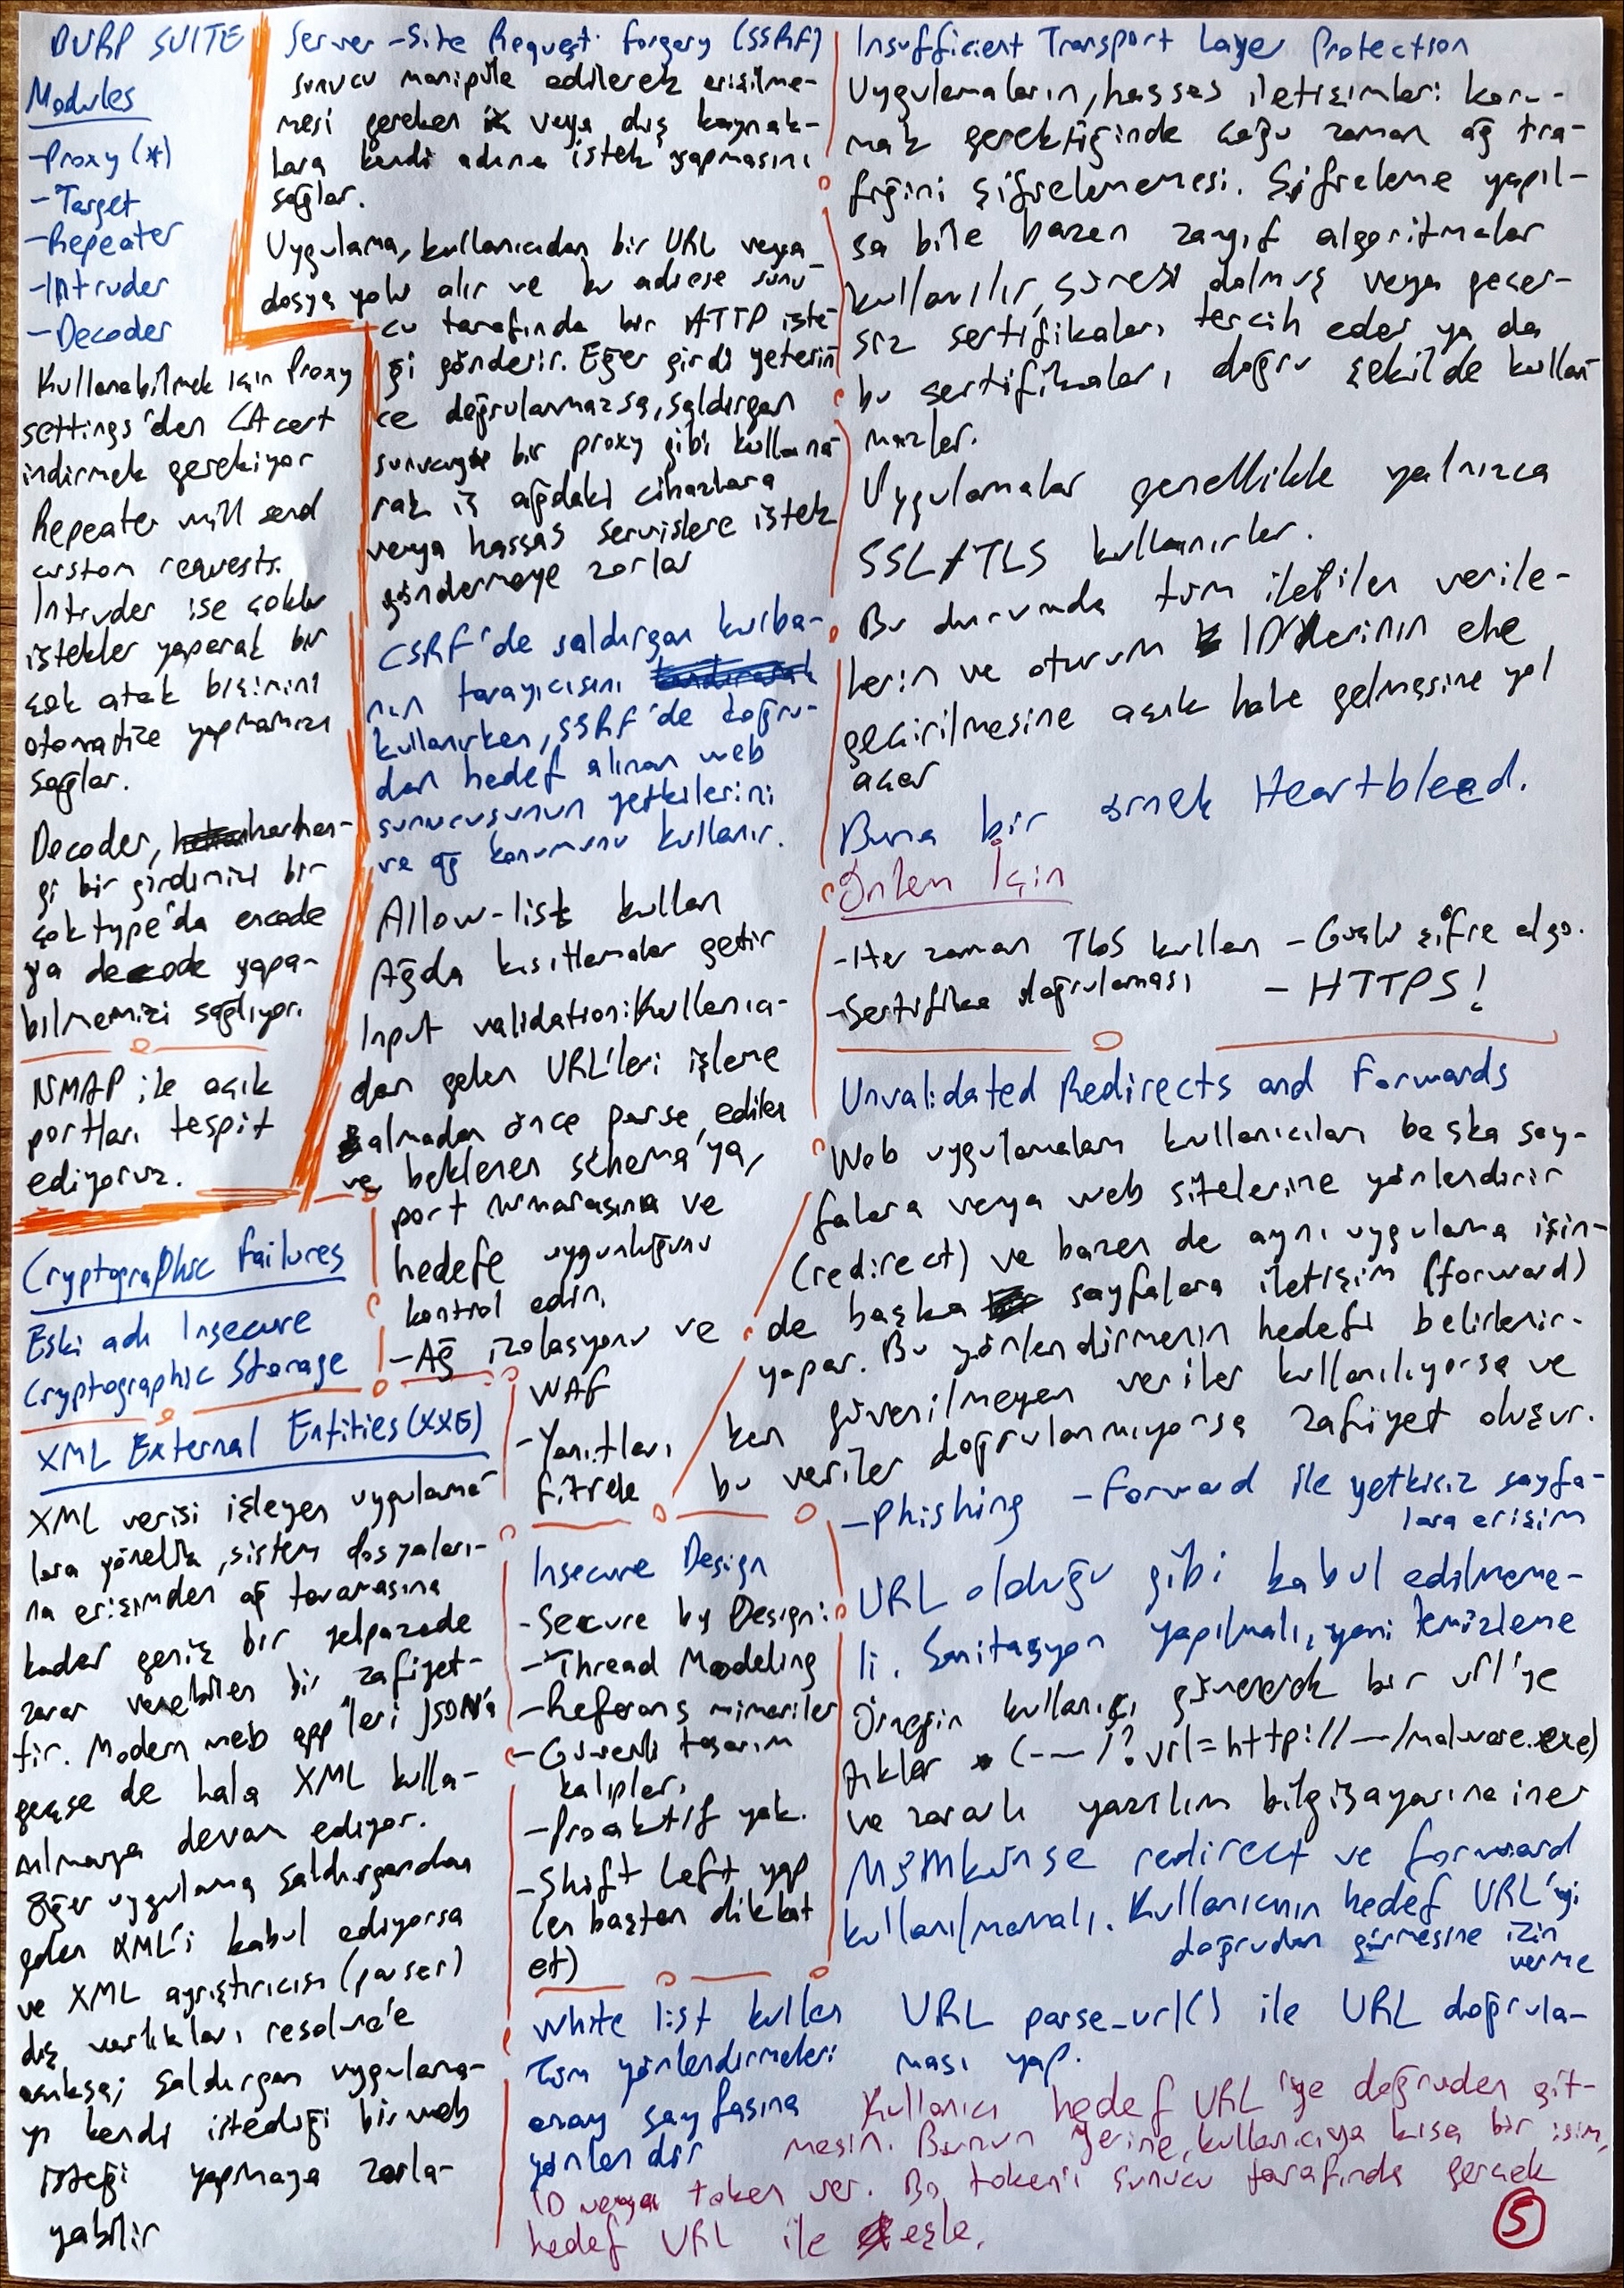 BURP SUITE
Modules
-Proxy (*)
-Target
-Repeater
-Intruder
-Decoder
Kullanabilmek için Proxy
settings'den CA cert
indirmek gerekiyor
Repeater will send
custom requests.
Intruder ise çoklu
istekler yaparak bir
çok atak biçimini
otomatize yapmamızı
sağlar.
Decoder, herhan-
gi bir girdimizi bir
çok type'da encode
ya decode yapa-
bilmemizi sağlıyor.
NMAP ile açık
portları tespit
ediyoruz.
Cryptographic Failures
Eski adı Insecure
Cryptographic Storage
XML External Entities (XXE)
XML verisi işleyen uygulama-
lara yönelik, sistem dosyaları-
na erişimden ağ taramasına
kadar geniş bir yelpazede
zarar verebilen bir zafiyet-
tir. Modern web app'leri JSON'a
geçse de hala XML kulla-
nılmaya devam ediyor.
Eğer uygulama saldırgandan
gelen XML'i kabul ediyorsa
ve XML ayrıştırıcısı (parser)
dış varlıkları resolve'e
açıksa; saldırgan uygulama-
yı kendi istediği bir web
isteği yapmaya zorla-
yabilir
Server-Site Request Forgery (SSRF)
sunucu manipüle edilerek erişilme-
mesi gereken iç veya dış kaynak-
lara kendi adına istek yapmasını
sağlar.
Uygulama, kullanıcıdan bir URL veya
dosya yolu alır ve bu adrese sunu-
cu tarafında bir HTTP iste-
ği gönderir. Eğer girdi yeterin
ce doğrulanmazsa, saldırgan
sunucuyu bir proxy gibi kullana
rak iç ağdaki cihazlara
veya hassas servislere istek
göndermeye zorlar
CSRF'de saldırgan kurba-
nın tarayıcısını
kullanırken, SSRF'de doğru-
dan hedef alınan web
sunucusunun yetkilerini
ve ağ konumunu kullanır.
Allow-list kullan
Ağda kısıtlamalar getir
Input validation: Kullanıcı-
dan gelen URL'leri işleme
almadan önce parse edilen
ve beklenen schema'ya,
port numarasına ve
hedefe uygunluğunu
kontrol edin.
-Ağ izolasyonu ve
WAF
-Yanıtları
filtrele
Insecure Design
-Secure by Design:
-Thread Modeling
-Referans mimariler
-Güvenli tasarım
kalıpları
-Proaktif yak.
-Shift Left yap
(en baştan dikkat
et)
Insufficient Transport Layer Protection
Uygulamaların, hassas iletişimleri koru-
mak gerektiğinde çoğu zaman ağ tra-
fiğini şifrelememesi. Şifreleme yapıl-
sa bile bazen zayıf algoritmalar
kullanılır, süresi dolmuş veya geçer-
siz sertifikaları tercih eder ya da
bu sertifikaları doğru şekilde kullan
mazlar.
Uygulamalar genellikle yalnızca
SSL/TLS kullanırlar.
Bu durumda tüm iletilen verile-
lerin ve oturum ID'lerinin ele
geçirilmesine açık hale gelmesine yol
açar
Buna bir örnek Heartbleed.
Önlem İçin
-Her zaman TLS kullan -Güçlü şifre algo.
-Sertifika doğrulaması -HTTPS!
Unvalidated Redirects and Forwards
Web uygulamaları kullanıcıları başka say-
falara veya web sitelerine yönlendirir
(redirect) ve bazen de aynı uygulama için-
de başka sayfalara iletişim (forward)
yapar. Bu yönlendirmenin hedefi belirlenir-
ken güvenilmeyen veriler kullanılıyorsa ve
bu veriler doğrulanmıyorsa zafiyet oluşur.
-Phishing -Forward ile yetkisiz sayfa-
lara erişim
URL olduğu gibi kabul edilmeme-
li. Sanitasyon yapılmalı, yani temizleme
Örneğin kullanıcı güvenerek bir url'ye
tıklar (---/?url=http://---/malware.exe)
ve zararlı yazılım bilgisayarına iner
Mümkünse redirect ve forward
kullanılmamalı. Kullanıcının hedef URL'yi
doğrudan girmesine izin
verme
White list kullan URL parse_url() ile URL doğrula-
Tüm yönlendirmeleri ması yap.
onay sayfasına
yönlendir
Kullanıcı hedef URL'ye doğrudan git-
mesin. Bunun yerine, kullanıcıya kısa bir isim,
ID veya token ver. Bu token'ı sunucu tarafında gerçek
hedef URL ile eşle.
5